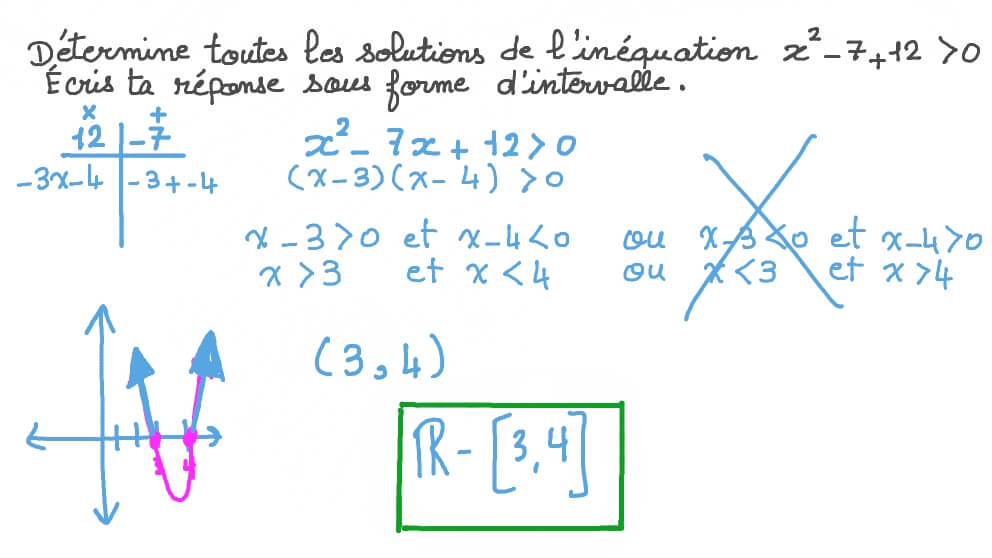 Détermine toutes les solutions de l'inéquation x² - 7 + 12 > 0
Écris ta réponse sous forme d'intervalle.
x +
12 -7
-3x-4 -3+-4
x² - 7x + 12 > 0
(x-3)(x-4) > 0
x-3>0 et x-4<0 ou x-3<0 et x-4>0
x>3 et x<4 ou x<3 et x>4
(3,4)
3 4
ℝ - [3,4]